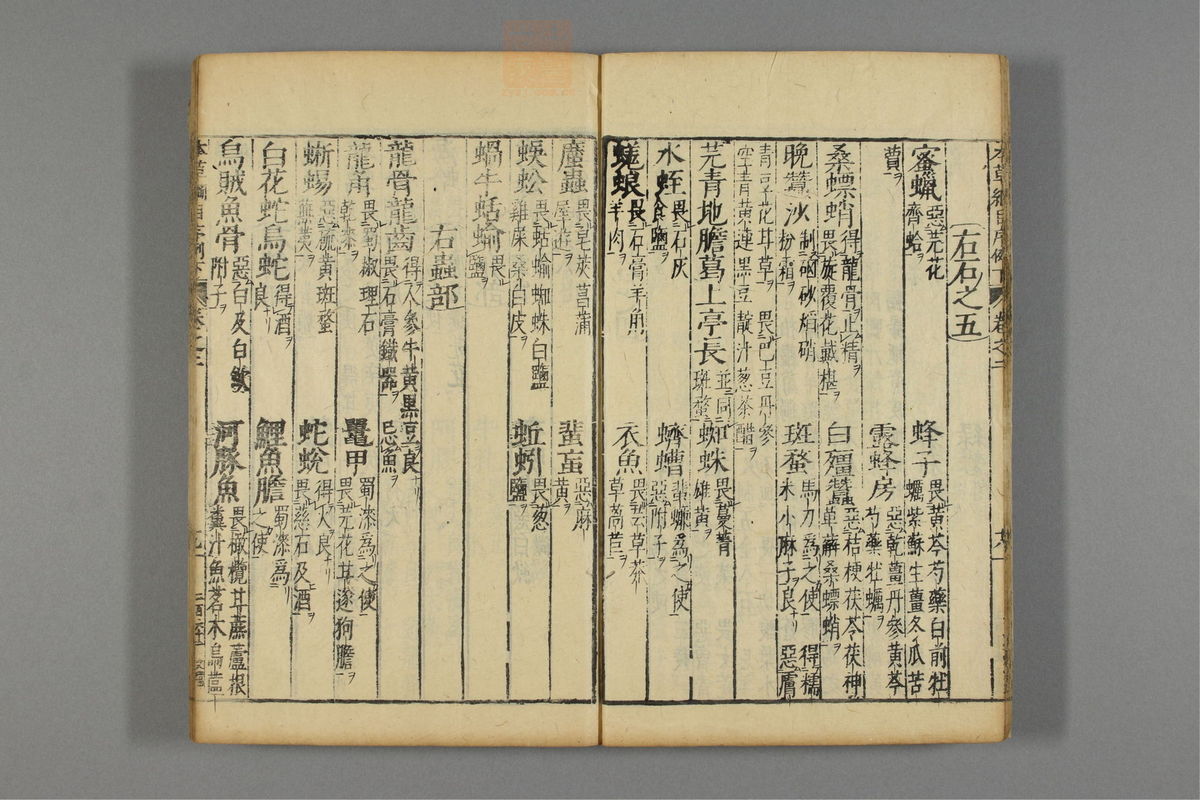 右石之五
蜜蠟 惡芫花齊蛤
蜂子 畏黃芩芍藥白前牡蠣紫蘇生薑冬瓜苦
蕒
露蜂房 惡乾薑丹參黃芩芍藥牡蠣
桑螵蛸 得龍骨止精畏旋覆花戴椹
白殭蠶 惡桔梗茯苓茯神萆薢桑螵蛸
晚蠶沙 制硇砂焰硝粉霜
斑蝥 馬刀為之使得糯米小麻子良惡膚
青豆花甘草畏巴豆丹參
空青黃連黑豆靛汁葱茶醋
芫青地膽葛上亭長 並同斑蝥
蜘蛛 畏蔓菁雄黃
水蛭 畏石灰食鹽
蠐螬 蜚蠊為之使惡附子
蜣蜋 畏石膏羊角羊肉
衣魚 畏芸草莽草萵苣
䗪蟲 畏皂莢菖蒲屋遊
蜚蝱 惡麻黃
蜈蚣 畏蛞蝓蜘蛛白鹽雞屎桑白皮
蚯蚓 畏葱鹽
蝸牛蛞蝓 畏鹽
右蟲部
龍骨龍齒 得人參牛黃黑豆良畏石膏鐵器忌魚
龍角 畏蜀椒理石乾漆
鼉甲 蜀漆為之使畏芫花甘遂狗膽
蜥蜴 惡硫黃斑蝥蕪荑
蛇蛻 得火良畏慈石及酒
白花蛇烏蛇 得酒良
鯉魚膽 蜀漆為之使
烏賊魚骨 惡白及白斂附子
河豚魚 畏橄欖甘蔗蘆根糞汁魚茗木烏蓲